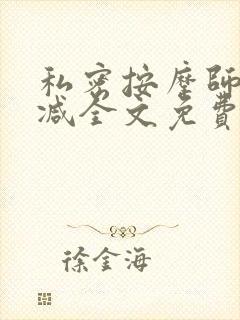 私密按摩師
减全文免費
徐金海